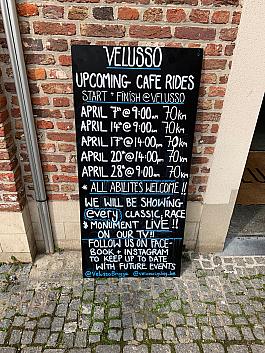 VELUSSO
UPCOMING CAFE RIDES
START + FINISH @ VELUSSO
APRIL 7th @ 9:00am 70km
APRIL 14th @ 9:00am 70km
APRIL 17th @ 14:00pm 70km
APRIL 20th @ 14:00pm 70km
APRIL 28th @ 9:00am 70km
* ALL ABILITES WELCOME!!
WE WILL BE SHOWING
every CLASSIC, RACE
* MONUMENT LIVE!!
ON OUR TV!!
FOLLOW US ON FACE-
BOOK + INSTAGRAM
TO KEEP UP TO DATE
WITH FUTURE EVENTS
@VelussoBrugge